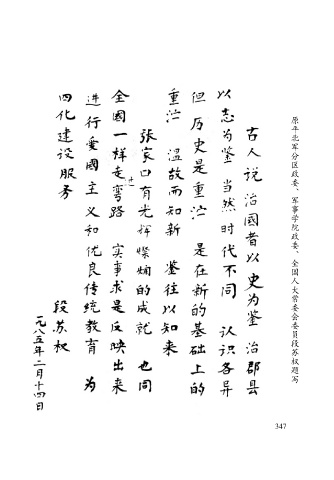 原平北军分区政委、军事学院政委、全国人大常委会委员段苏权题写
古人说 治国者以史为鉴 治郡县
以志为鉴 当然时代不同 认识各异
但历史是重茫 是在新的基础上的
重茫 温故而知新 鉴往以知来
张家口有光辉灿烂的成就 也同
全国一样走过弯路 实事求是反映出来
进行爱国主义和优良传统教育 为
四化建设服务
段苏权
一九八五年二月十四日
347